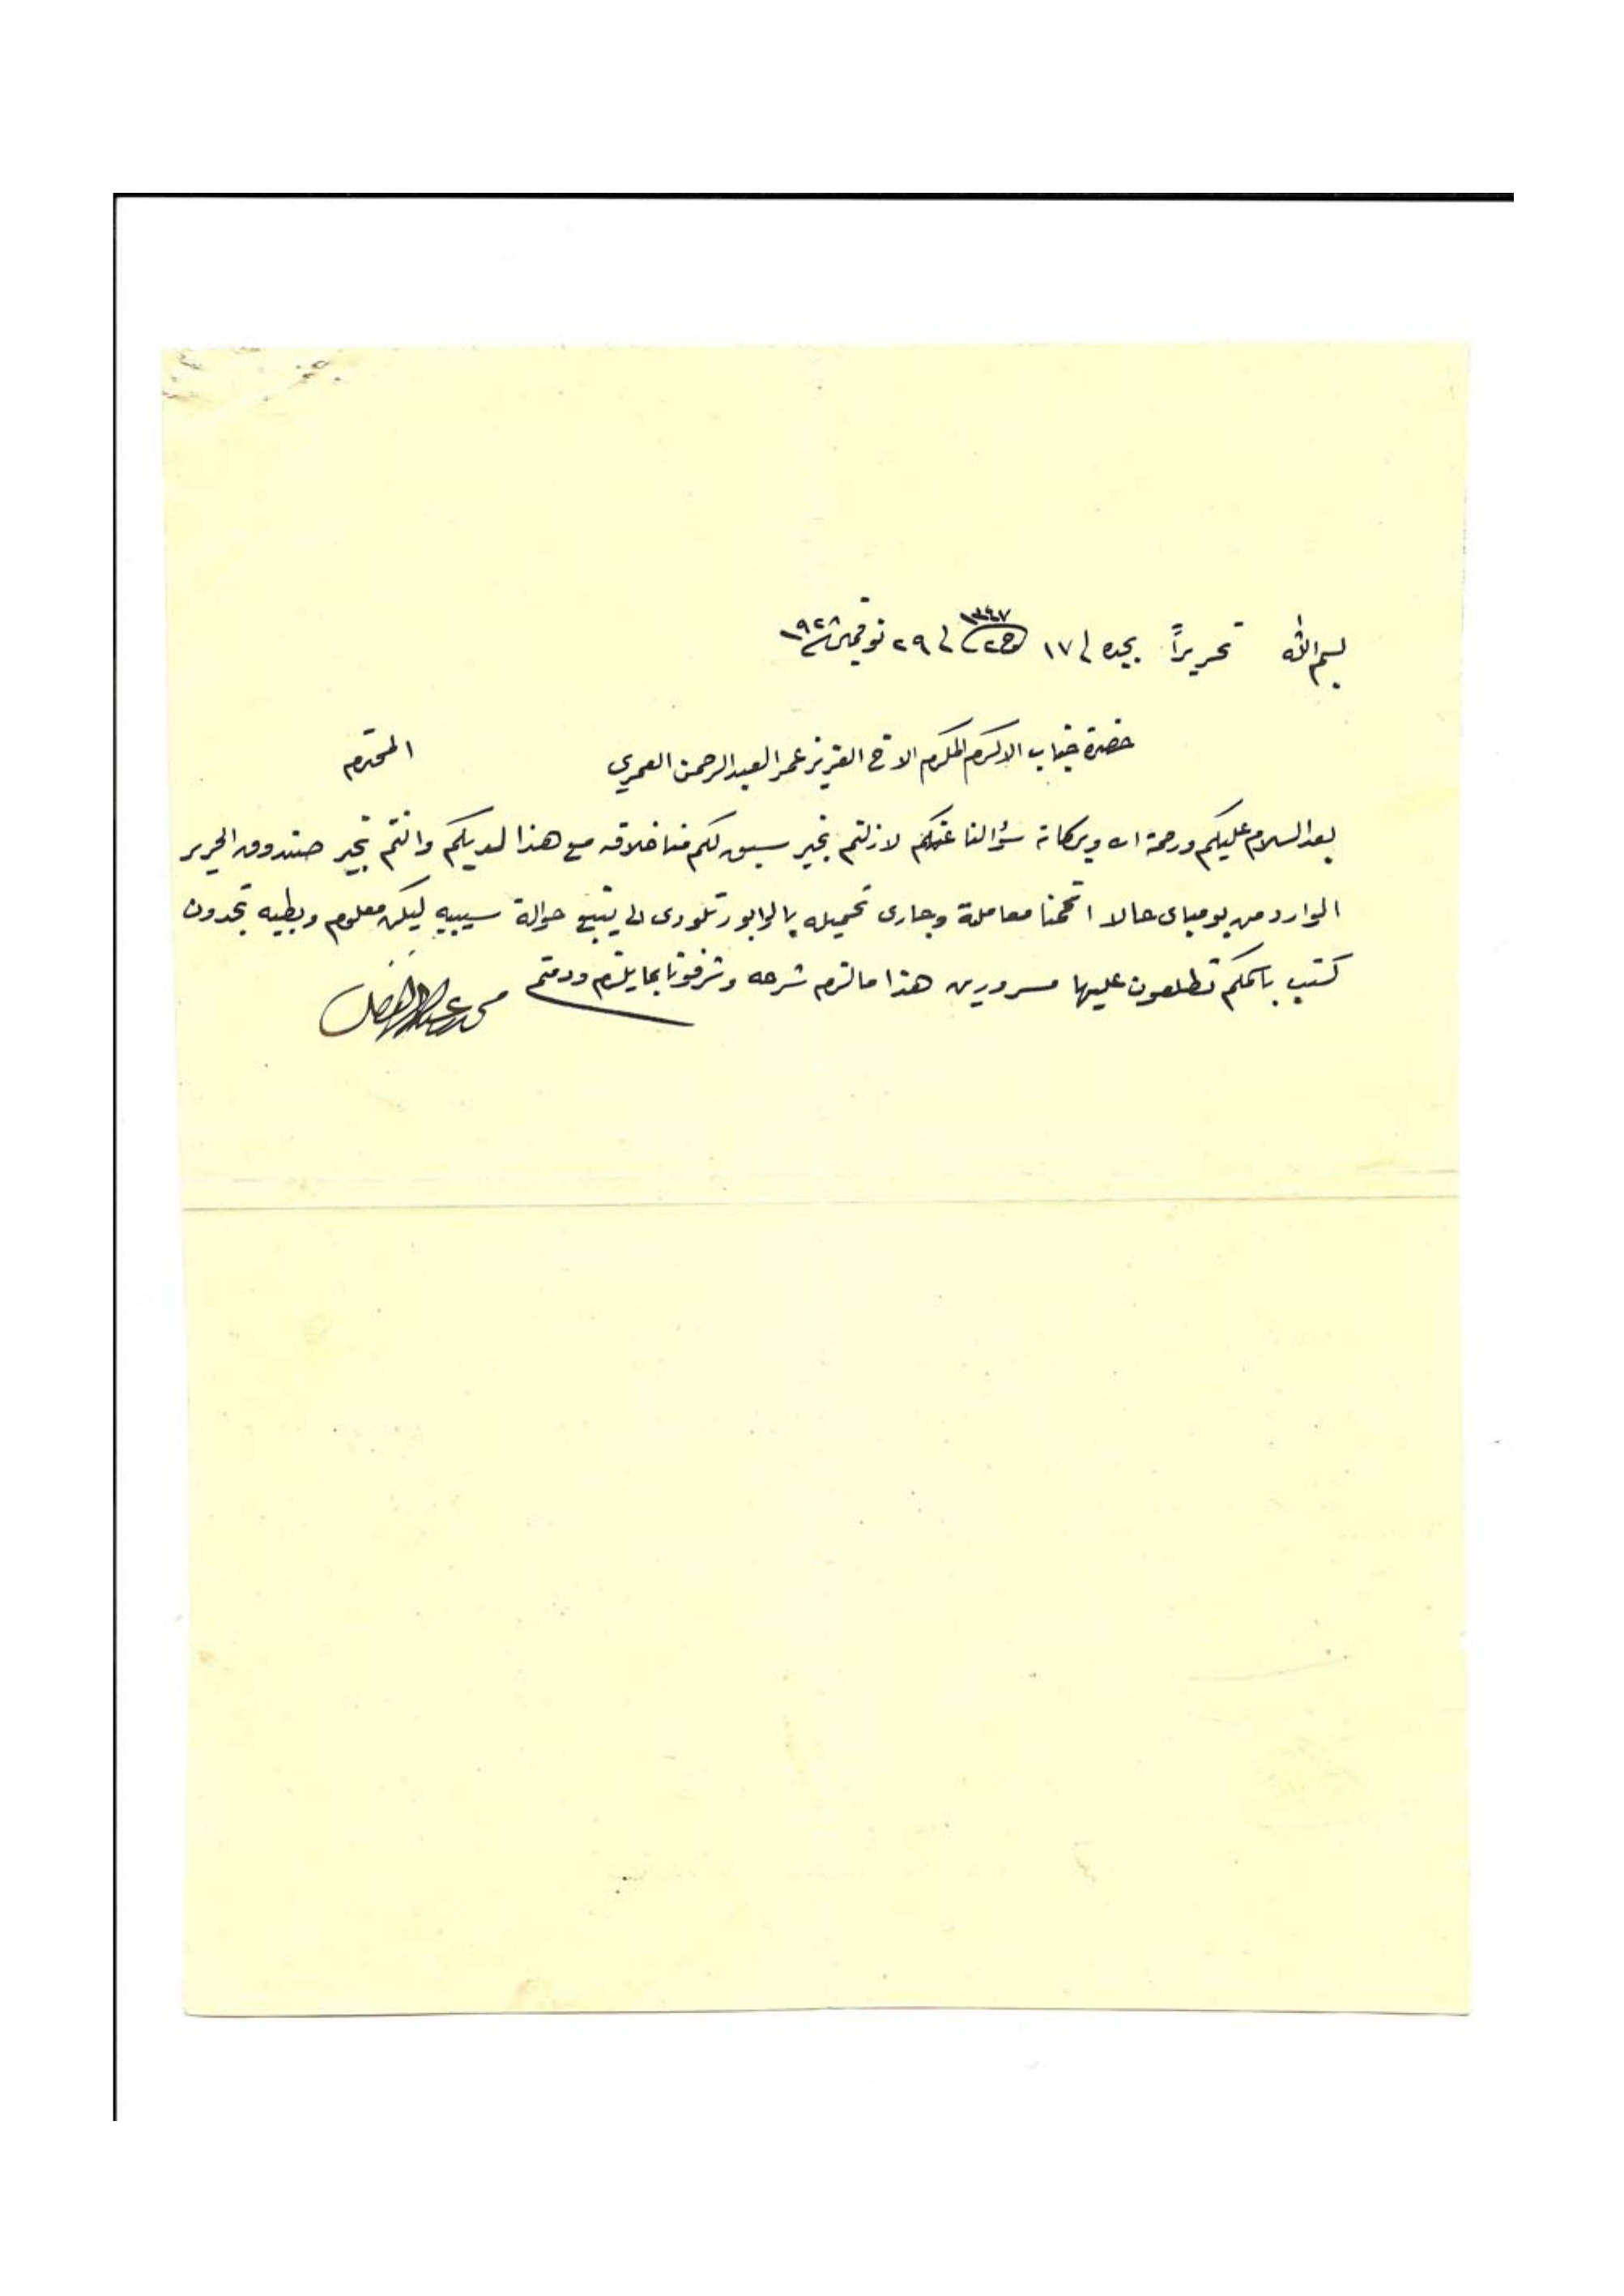 بسم الله تحريراً بجده في ١٧ ج٢ ١٣٤٧ في ٢٩ نوفمبر ١٩٢٨
حضرة جناب الاكرم المكرم الاخ العزيز عمر العبدالرحمن العمري المحترم
بعد السلام عليكم ورحمة الله وبركاته سؤالنا عنكم لازلتم بخير سبق لكم منا خلافه مع هذا لديكم وانتم بخير صندوق الحرير
الوارد من بومباي حالا اتممنا معاملة وجاري تحميله بالوابور تلودي الى ينبع حوالة سبيه ليكن معلوم وبطيه تجدون
كتب باسمكم تطلعون عليها مسرورين هذا مالزم شرحه وشرفونا بما يلزم ودمتم
محمد عبدالله الفضل